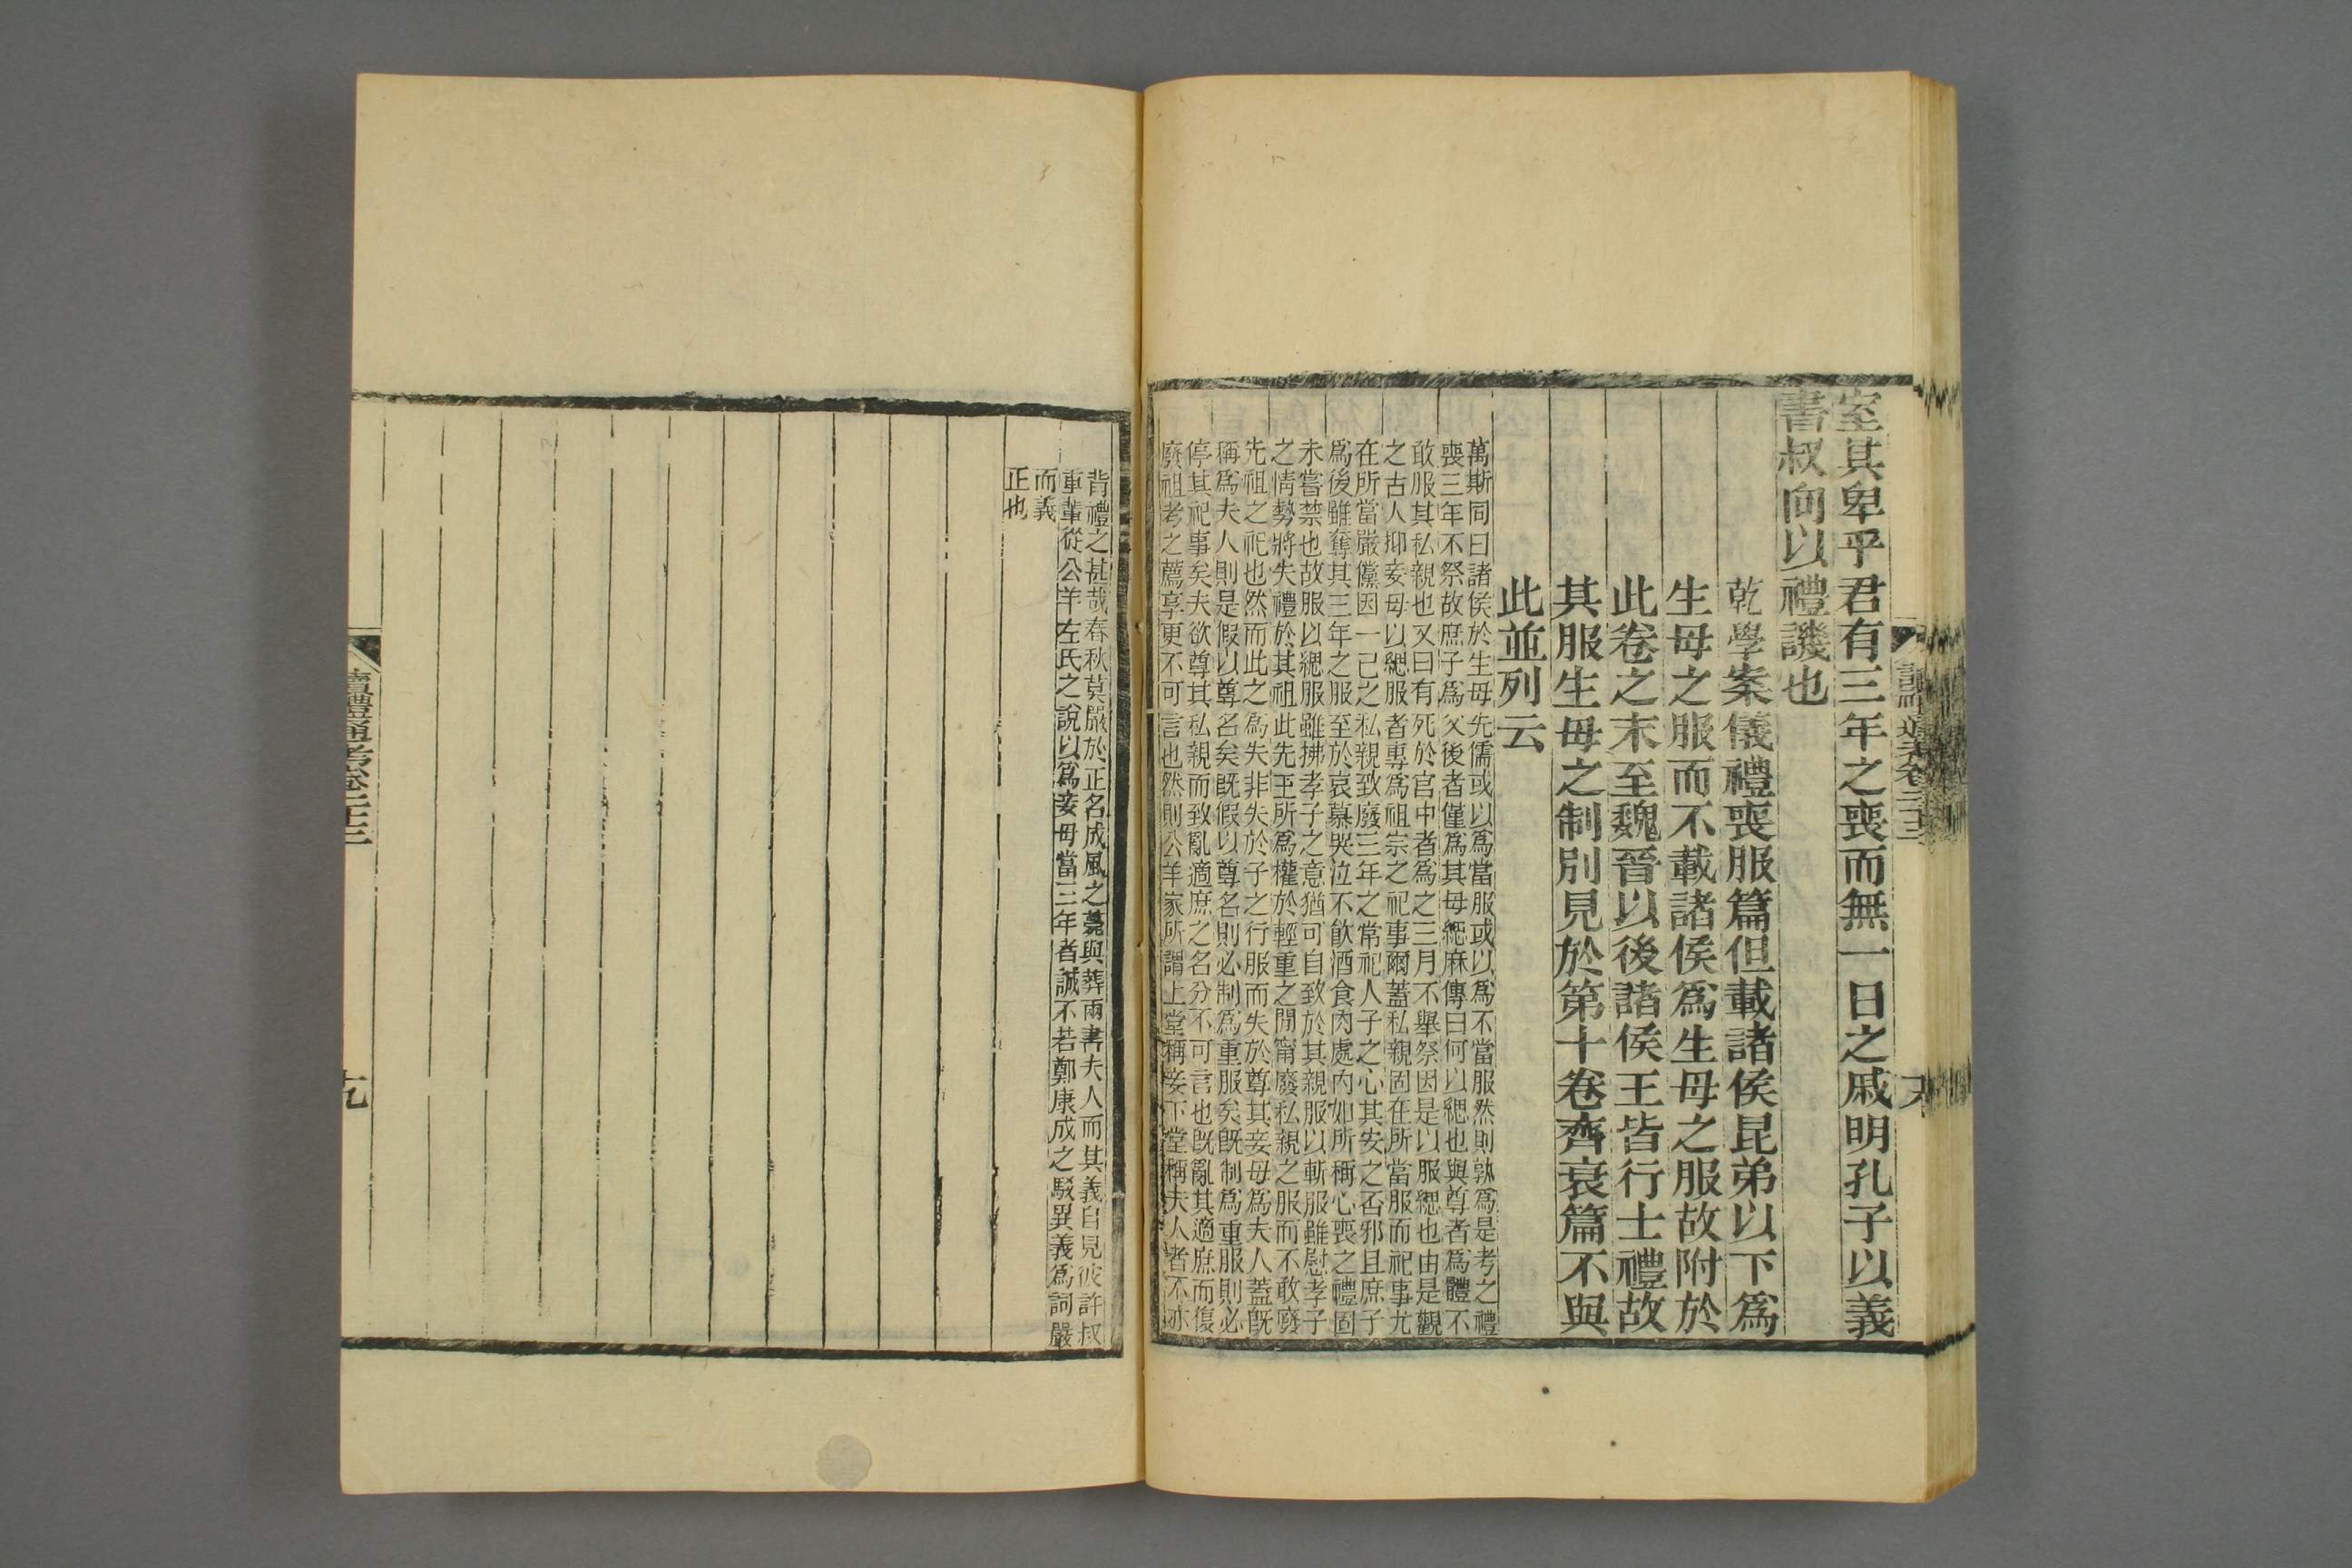 室其卑乎君有三年之喪而無一日之戚明孔子以義
書叔向以禮譏也
乾學案儀禮喪服篇但載諸侯昆弟以下爲
生母之服而不載諸侯爲生母之服故附於
此卷之末至魏晉以後諸侯王皆行士禮故
其服生母之制別見於第十卷齊衰篇不與
此並列云
萬斯同曰諸侯於生母先儒或以爲當服或以爲不當服然則孰爲是考之禮
喪三年不祭故庶子爲父後者僅爲其母緦麻傳曰何以緦也與尊者爲體不
敢服其私親也又曰有死於宫中者爲之三月不舉祭因是以服緦也由是觀
之古人抑妾母以緦服者專爲祖宗之祀事爾蓋私親固在所當服而祀事尤
在所當嚴儻因一己之私親致廢三年之常祀人子之心其安之否邪且庶子
爲後雖奪其三年之服至於哀慕哭泣不飲酒食肉處內如所稱心喪之禮固
未嘗禁也故服以緦服雖拂孝子之意猶可自致於其親服以斬服雖慰孝子
之情勢將失禮於其祖此先王所爲權於輕重之閒甯廢私親之服而不敢廢
先祖之祀也然而此之爲失非失於子之行服而失於尊其妾母爲夫人蓋旣
稱爲夫人則是假以尊名矣旣假以尊名則必制爲重服矣旣制爲重服則必
停其祀事矣夫欲尊其私親而致亂適庶之名分不可言也旣亂其適庶而復
廢祖考之薦享更不可言也然則公羊家所謂上堂稱妾下堂稱夫人者不亦
背禮之甚哉春秋莫嚴於正名成風之薨與葬兩書夫人而其義自見彼許叔
重輩從公羊左氏之說以爲妾母當三年者誠不若鄭康成之駁異義爲詞嚴
而義
正也
讀禮通考卷二十三
九